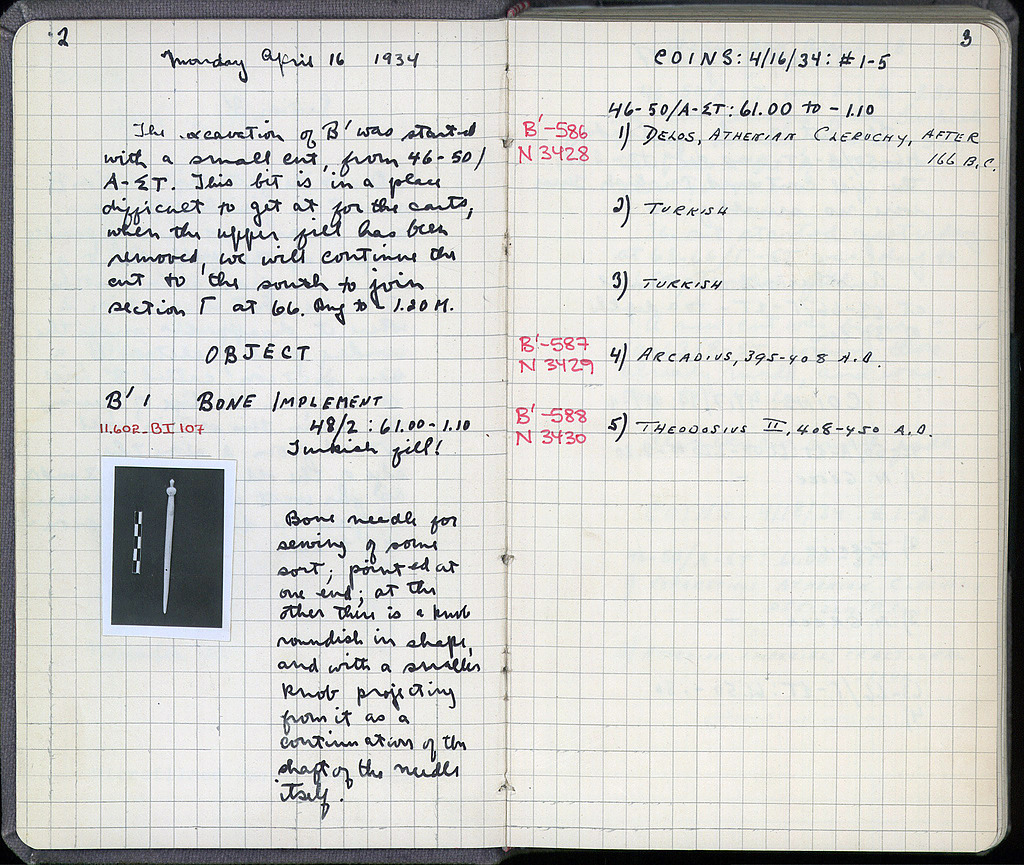 2
Monday April 16 1934
The excavation of B' was started
with a small cut, from 46-50/
A-ΣT. This bit is in a place
difficult to get at for the carts;
when the upper fill has been
removed, we will continue the
cut to the south to join
section Γ at 66. Dug to -1.20 M.
OBJECT
B' 1 BONE IMPLEMENT
11.602-BI 107
48/2 : 61.00-1.10
Turkish fill!
Bone needle for
sewing of some
sort; pointed at
one end; at the
other there is a knob
roundish in shape,
and with a smaller
knob projecting
from it as a
continuation of the
shaft of the needle
itself.
3
COINS: 4/16/34: #1-5
46-50/A-ΣT: 61.00 to -1.10
B'-586
N 3428
1) DELOS, ATHENIAN CLERUCHY, AFTER
166 B.C.
2) TURKISH
3) TURKISH
B'-587
N 3429
4) ARCADIUS, 395-408 A.D.
B'-588
N 3430
5) THEODOSIUS II, 408-450 A.D.